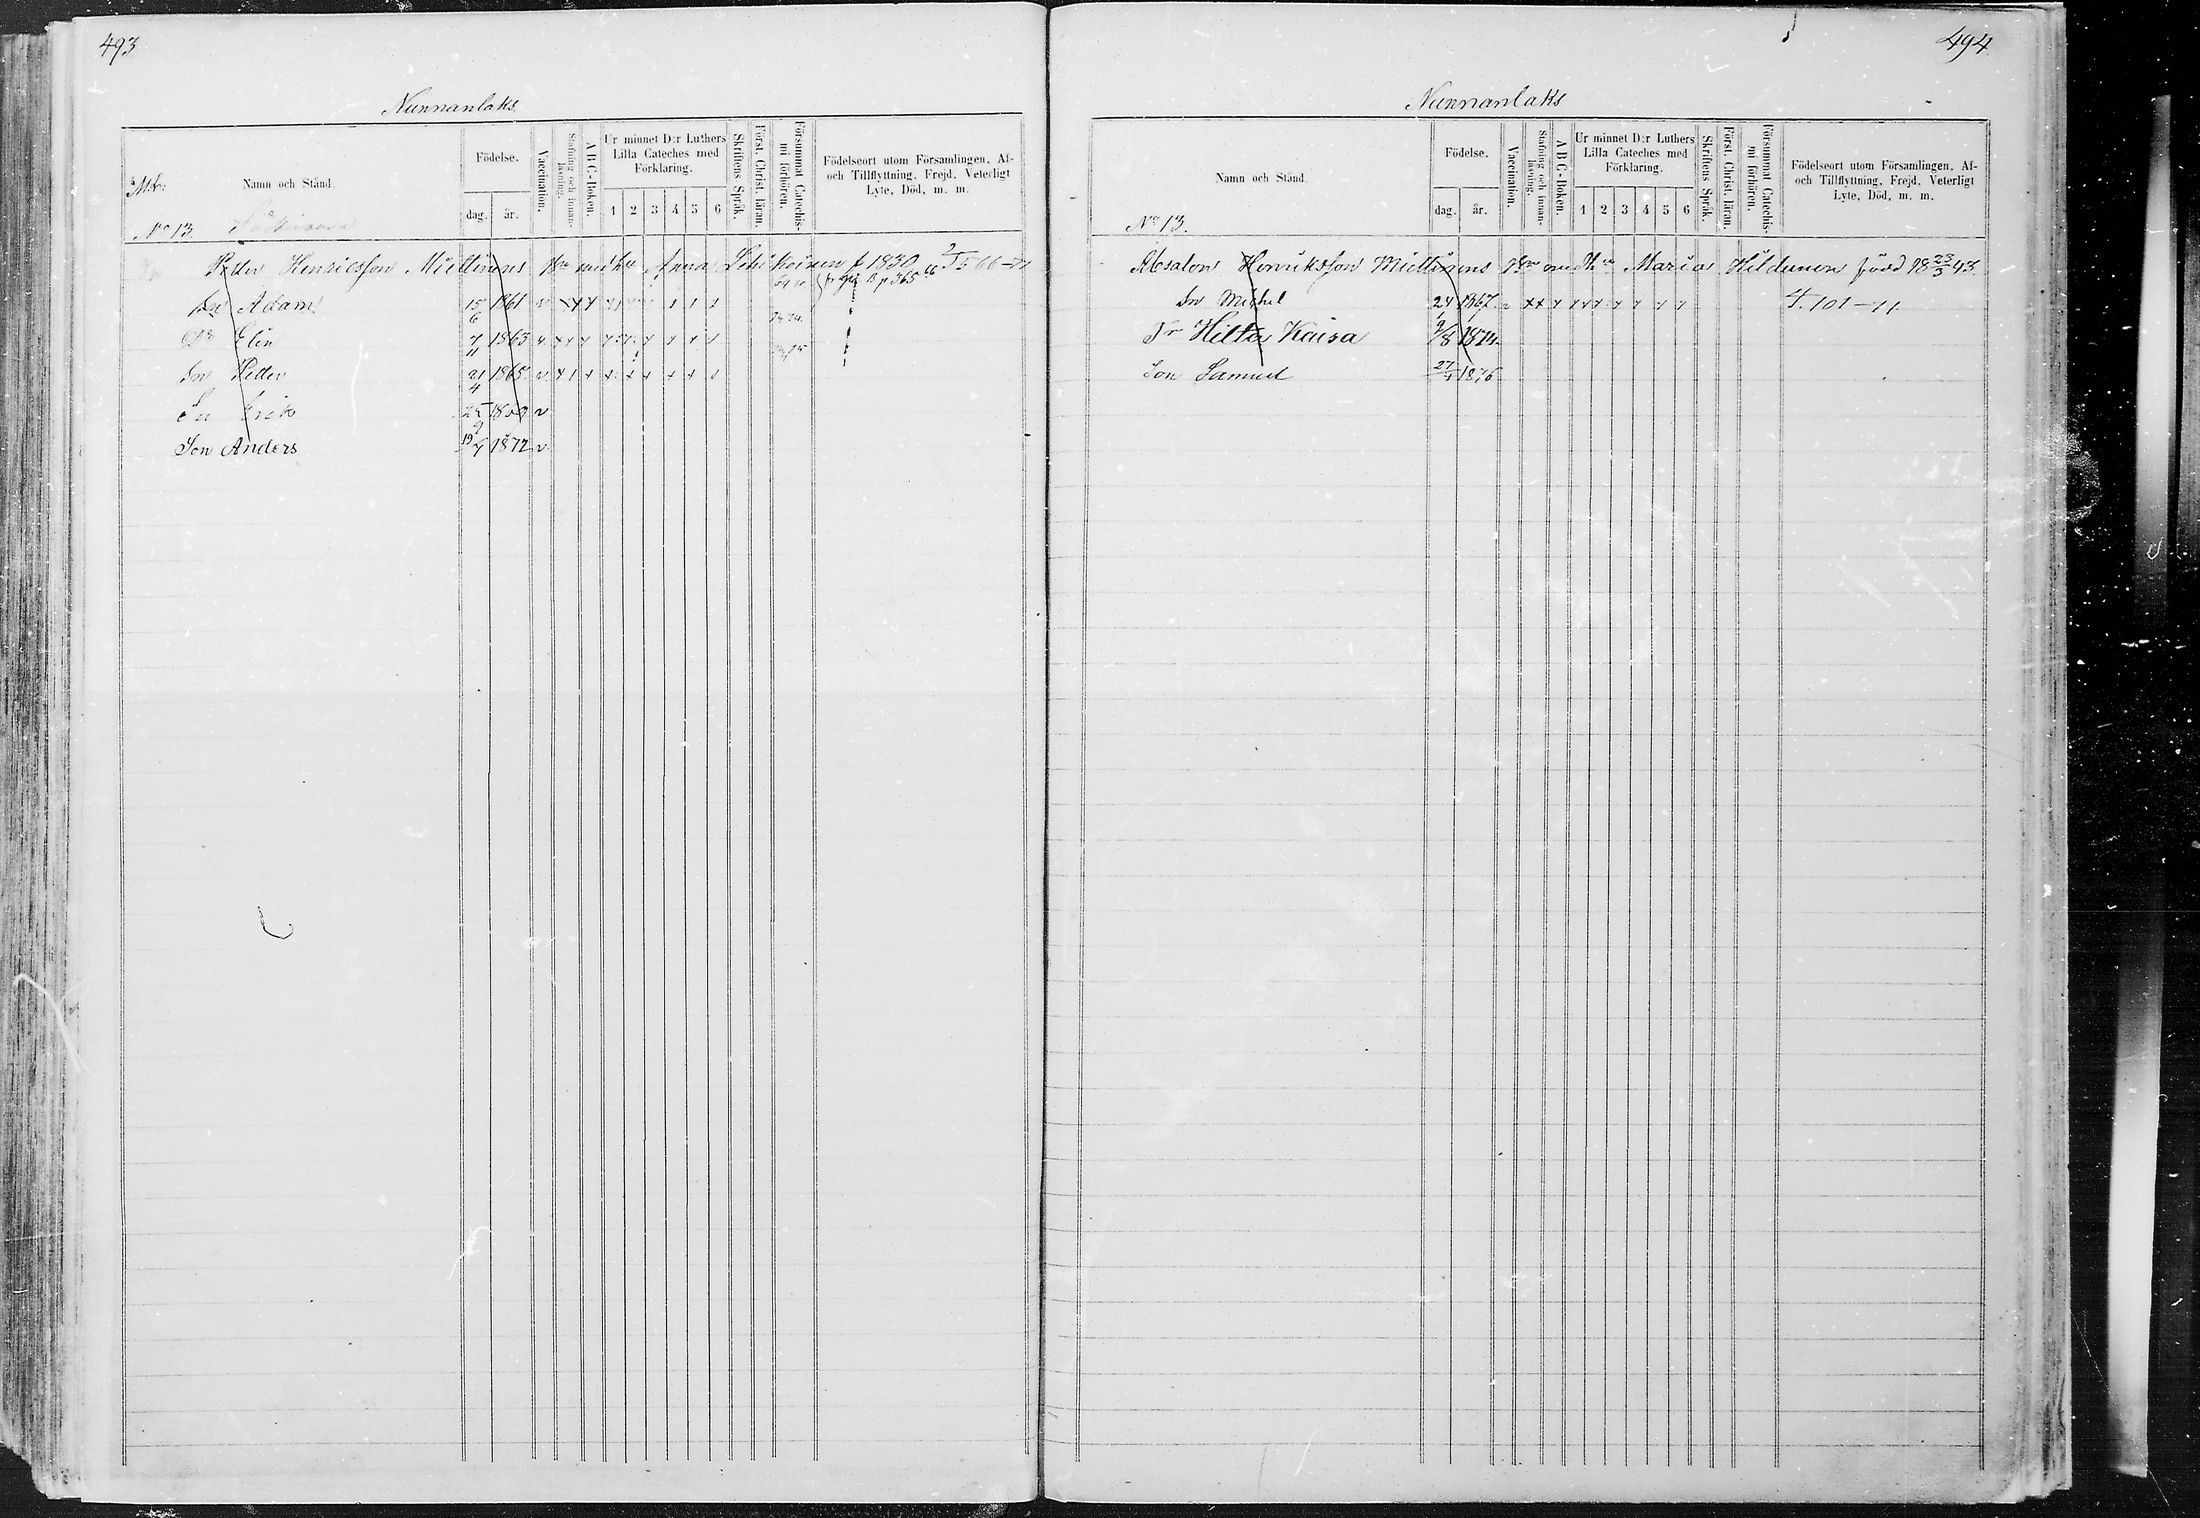 493
Nunnanlaks
Namn och Stånd.
Födelse.
dag.
år.
Vaccination.
Stafning och innanläsning.
A B C-Boken.
Ur minnet D:r Luthers
Lilla Cateches med
Förklaring.
1 2 3 4 5 6
Skriftens Språk.
Först. Christ. läran.
Försummat Catechismi förhören.
Födelseort utom Församlingen, Af-
och Tillflyttning, Frejd, Veterligt
Lyte, Död, m. m.
No 13.
Petter Henricsson Miettinens Anna f 1830
Sn Adam 15/6 1861 v
Elin 7/11 1863 v
Sn Petter 21/4 1865 v
Sn Erik 25/9 v
Son Anders 19/4 1872 v
494
Nunnanlaks
Namn och Stånd.
Födelse.
dag.
år.
Vaccination.
Stafning och innanläsning.
A B C-Boken.
Ur minnet D:r Luthers
Lilla Cateches med
Förklaring.
1 2 3 4 5 6
Skriftens Språk.
Först. Christ. läran.
Försummat Catechismi förhören.
Födelseort utom Församlingen, Af-
och Tillflyttning, Frejd, Veterligt
Lyte, Död, m. m.
No 13.
Absalon Henriksson Miettinens Maria Hildunen född 18 23/3 43.
Sn Michel 24/1 1867
Kaisa 9/8 1874
Son Samuel 27/4 1876